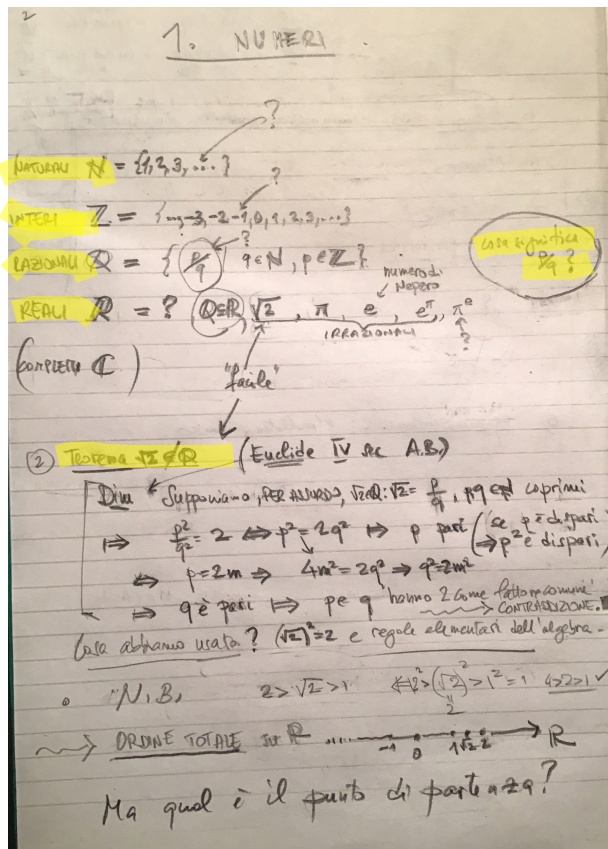 2
1. NUMERI
?
NATURALI ℕ = {1,2,3,...}
?
INTERI ℤ = {...,-3,-2-1,0,1,2,3,...}
?
RAZIONALI ℚ = { p/q q∈ℕ, p∈ℤ}
cosa significa p/q ?
numero di Nepero
REALI ℝ = ? ℚ⊆ℝ √2, π, e, e^π, π^e
IRRAZIONALI
?
(COMPLESSI ℂ)
"facile"
② Teorema √2∉ℚ (Euclide IV sec A.B.)
Dim Supponiamo, PER ASSURDO, √2∈ℚ: √2 = p/q, p,q∈ℕ coprimi
⟹ p²/q² = 2 ⟺ p² = 2q² ⟹ p pari (se p è dispari ⟹ p² è dispari)
⟺ p=2m ⟹ 4m²=2q² ⟹ q²=2m²
⟹ q è pari ⟹ p e q hanno 2 come fattore comune
CONTRADDIZIONE.
Cosa abbiamo usato? (√2)²=2 e regole elementari dell'algebra.
• N.B. 2>√2>1 2²>(√2)²>1²=1 4>2>1 ✓
2
ORDINE TOTALE su ℝ ..... -1 0 1 √2 2 ℝ
Ma qual è il punto di partenza?